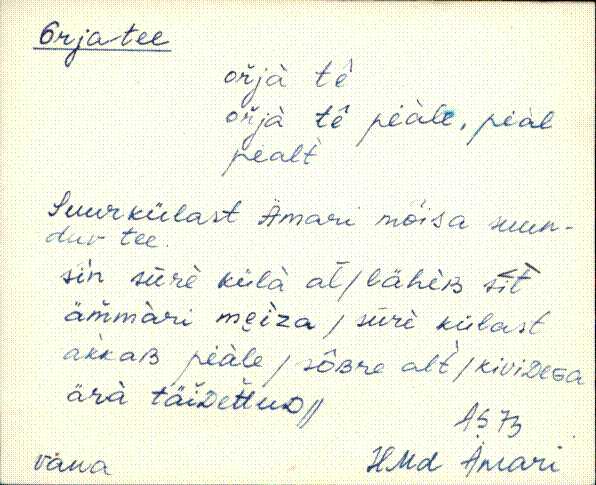 Orjatee
ořjà tê
ořjà tê peàle, peàl
pealt
Suurkülast Ämari mõisa suun-
duv tee.
siǹ sūrè külà al̄/lähèʙ sīt
äm̆màri meìza/sūrè külast
akkaʙ peàle/sôʙre alt̀/kiviᴅeɢa
ärà täiᴅettuᴅ//
AS 73
vana HMd Ämari